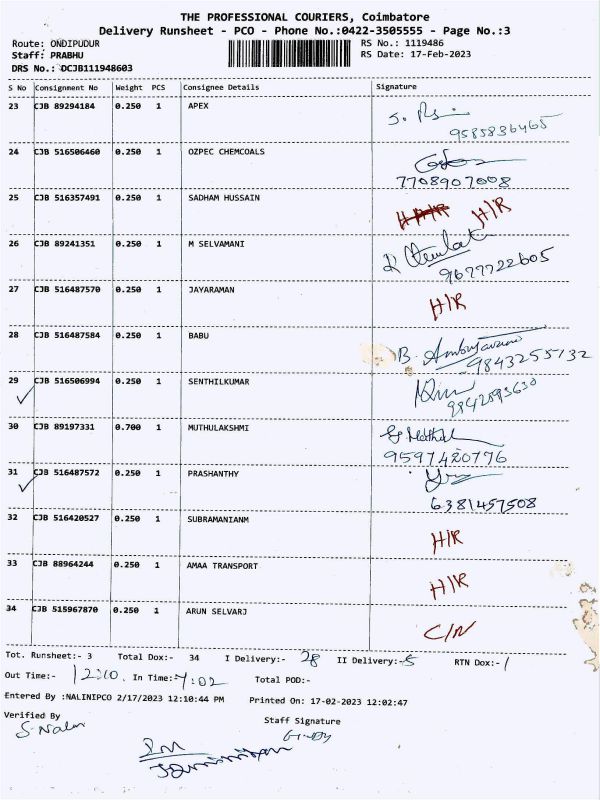 THE PROFESSIONAL COURIERS, Coimbatore
Delivery Runsheet - PCO - Phone No.:0422-3505555 - Page No.:3
Route: ONDIPUDUR RS No.: 1119486
Staff: PRABHU RS Date: 17-Feb-2023
DRS No.: DCJB111948603
S No Consignment No Weight PCS Consignee Details Signature
23 CJB 89294184 0.250 1 APEX
9585836465
24 CJB 516506460 0.250 1 OZPEC CHEMCOALS
7708907008
25 CJB 516357491 0.250 1 SADHAM HUSSAIN H/R
26 CJB 89241351 0.250 1 M SELVAMANI
9677722605
27 CJB 516487570 0.250 1 JAYARAMAN H/R
28 CJB 516487584 0.250 1 BABU B.
9843255132
29 CJB 516506994 0.250 1 SENTHILKUMAR
30 CJB 89197331 0.700 1 MUTHULAKSHMI
9597420776
31 CJB 516487572 0.250 1 PRASHANTHY
6381457508
32 CJB 516420527 0.250 1 SUBRAMANIANM H/R
33 CJB 88964244 0.250 1 AMAA TRANSPORT H/R
34 CJB 515967870 0.250 1 ARUN SELVARJ C/N
Tot. Runsheet:- 3 Total Dox:- 34 I Delivery:- 28 II Delivery:- 5 RTN Dox:- 1
Out Time:- 12:10 In Time:- 7:02 Total POD:-
Entered By :NALINIPCO 2/17/2023 12:10:44 PM Printed On: 17-02-2023 12:02:47
Verified By Staff Signature